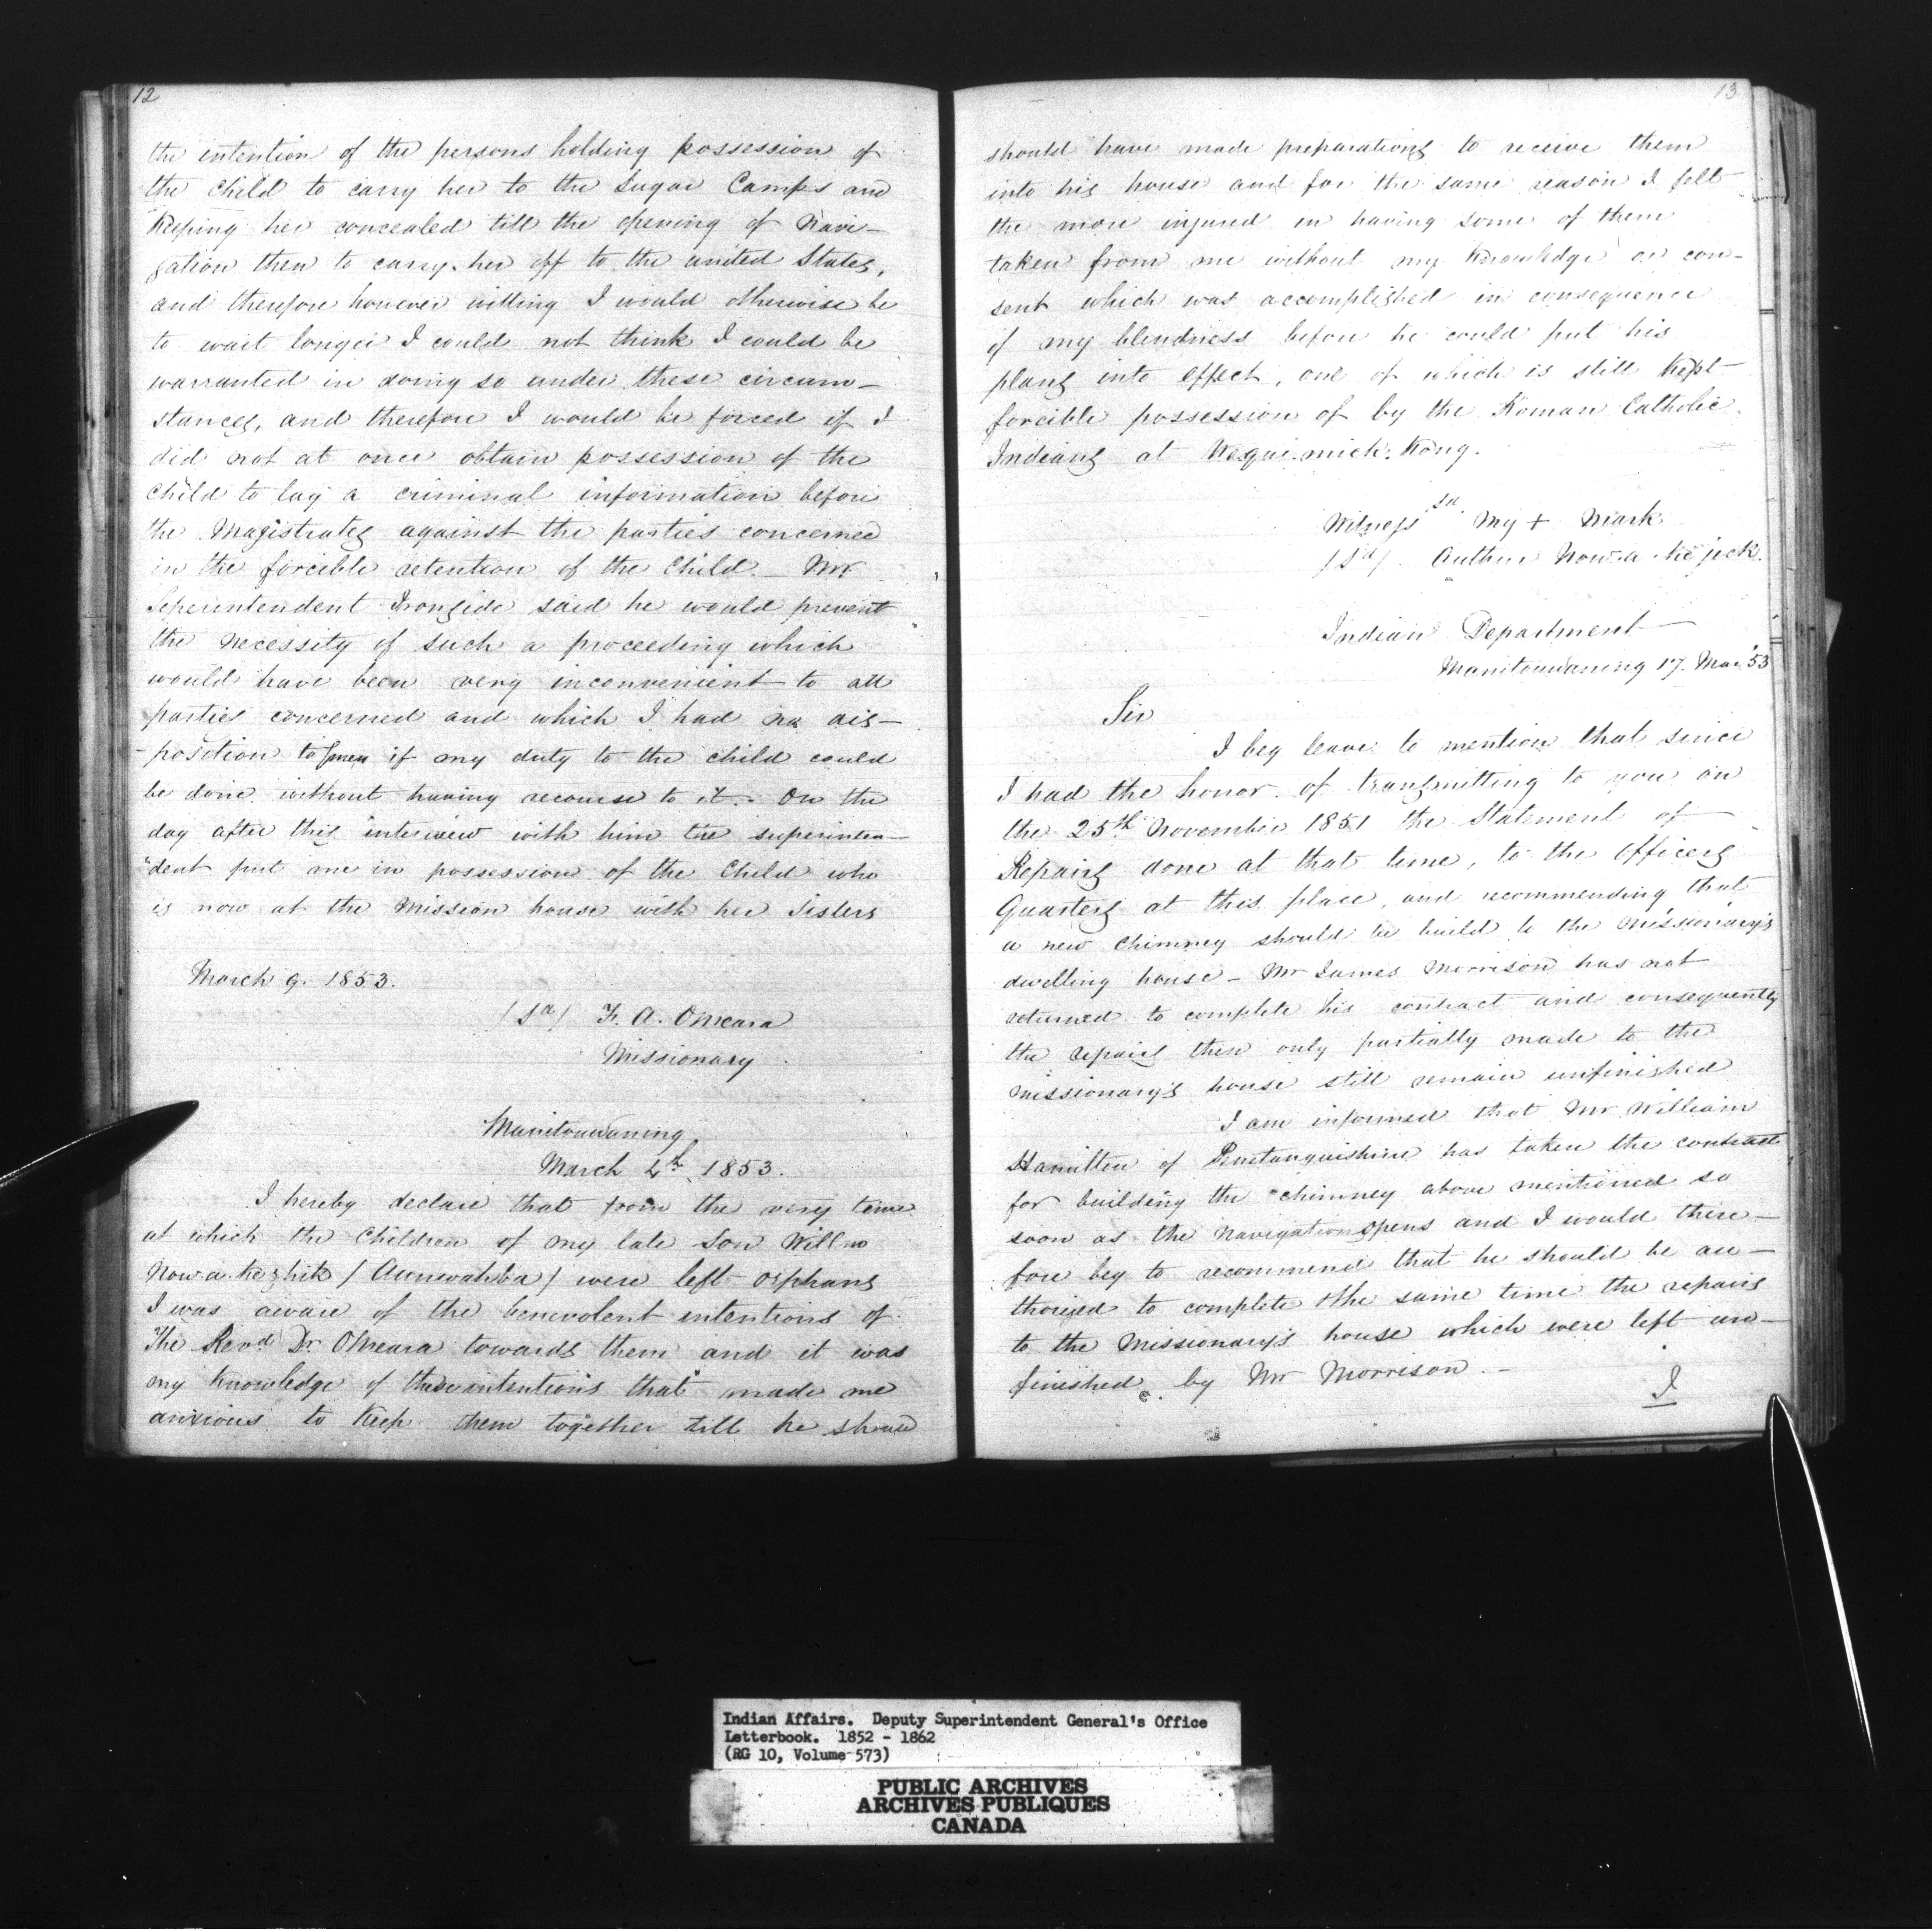 12
the intention of the persons holding possession of
the Child to carry her to the Sugar Camps and
Keeping her concealed till the opening of Navi-
gation then to carry her off to the united States,
and therefore however willing I would otherwise be
to wait longer I could not think I could be
warranted in doing so under these circum-
stances, and therefore I would be forced if I
did not at once obtain possession of the
Child to lay a criminal information before
the Magistrates against the parties concerned
in the forcible retention of the Child. - Mr
Seperintendent Ironside said he would prevent
the necessity of such a proceeding which
would have been very inconvenient to all
parties concerned and which I had no dis-
-position to if my duty to the child could
be done without having recourse to it. On the
day after this interview with him the superinten-
"dent put me in possession of the Child who
is now at the Mission house with her Sisters
March 9. 1853.
/Sd/ F. A. OMeara
Missionary
Manitouwaning
March 4th 1853.
I hereby declare that from the very time
at which the Children of my late Son Willm
Now a. ke zhik / Aunwahba / were left orphans
I was aware of the benevolent intentions of
The Revd Dr OMeara towards them and it was
my Knowledge of these intentions that made me
anxious to Keep them together till he should
13
should have made preparations to receive them
into his house and for the same reason I felt
the more injured in having some of them
taken from me without my Knowledge or con-
sent which was accomplished in consequence
of my blindness before he could put his
plans into effect, one of which is still Kept
forcible possession of by the Roman Catholic
Indians at Wequi-mick-Kong.
Witness Sd My + Mark
/Sd/ Author Now-a-Ke jeck.
Indian Department
Manitouwaning 17. Mar '53
Sir
I beg leave to mention that since
I had the honor of transmitting to you on
the 25th November 1851 the Statement of
Repairs done at that time, to the Officers
Quarters at this place, and recommending that
a new Chimney should be build to the Missionary's
dwelling house - Mr James Morrison has not
returned to complete his contract and consequently
the repairs then only partially made to the
missionary's house still remain unfinished
I am informed that Mr William
Hamilton of Penetanguishine has taken the contract
for building the chimney above mentioned so
soon as the navigation opens and I would there-
fore beg to recommend that he should be au-
thorized to complete the same time the repairs
to the Missionary's house which were left un-
finished by Mr Morrison. -
I
Indian Affairs. Deputy Superintendent General's Office
Letterbook. 1852 - 1862
(RG 10, Volume 573)
PUBLIC ARCHIVES
ARCHIVES PUBLIQUES
CANADA